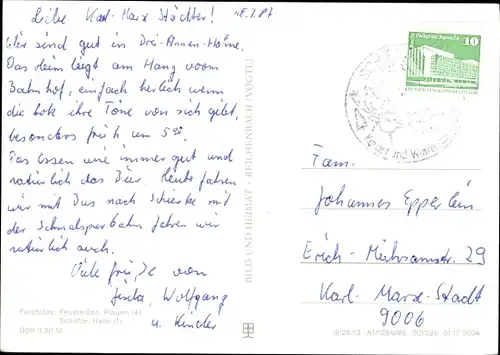 Liebe Karl-Marx Städter! 18.7.87
Wir sind gut in Drei-Annen-Hohne.
Das Heim liegt am Hang vorm
Bahnhof, einfach herlich wenn
die Lok ihre Töne von sich gibt,
besonders früh um 5 00.
Das Essen wie immer gut und
natürlich das Bier. Heute fahren
wir mit Bus nach Schierke mit
der Schmalspurbahn fahren wir
natürlich auch.
Viele Grüße von
Wolfgang
u. Kinder
Farbfotos: Feuereißen, Plauen (4)
Schütze, Halle (1)
BILD UND HEIMAT · REICHENBACH (VOGTL)
Palast der Republik
10
Kurort und Winter
Fam.
Johannes Epperlein
Erich-Mühsamstr. 29
Karl-Marx-Stadt
9006